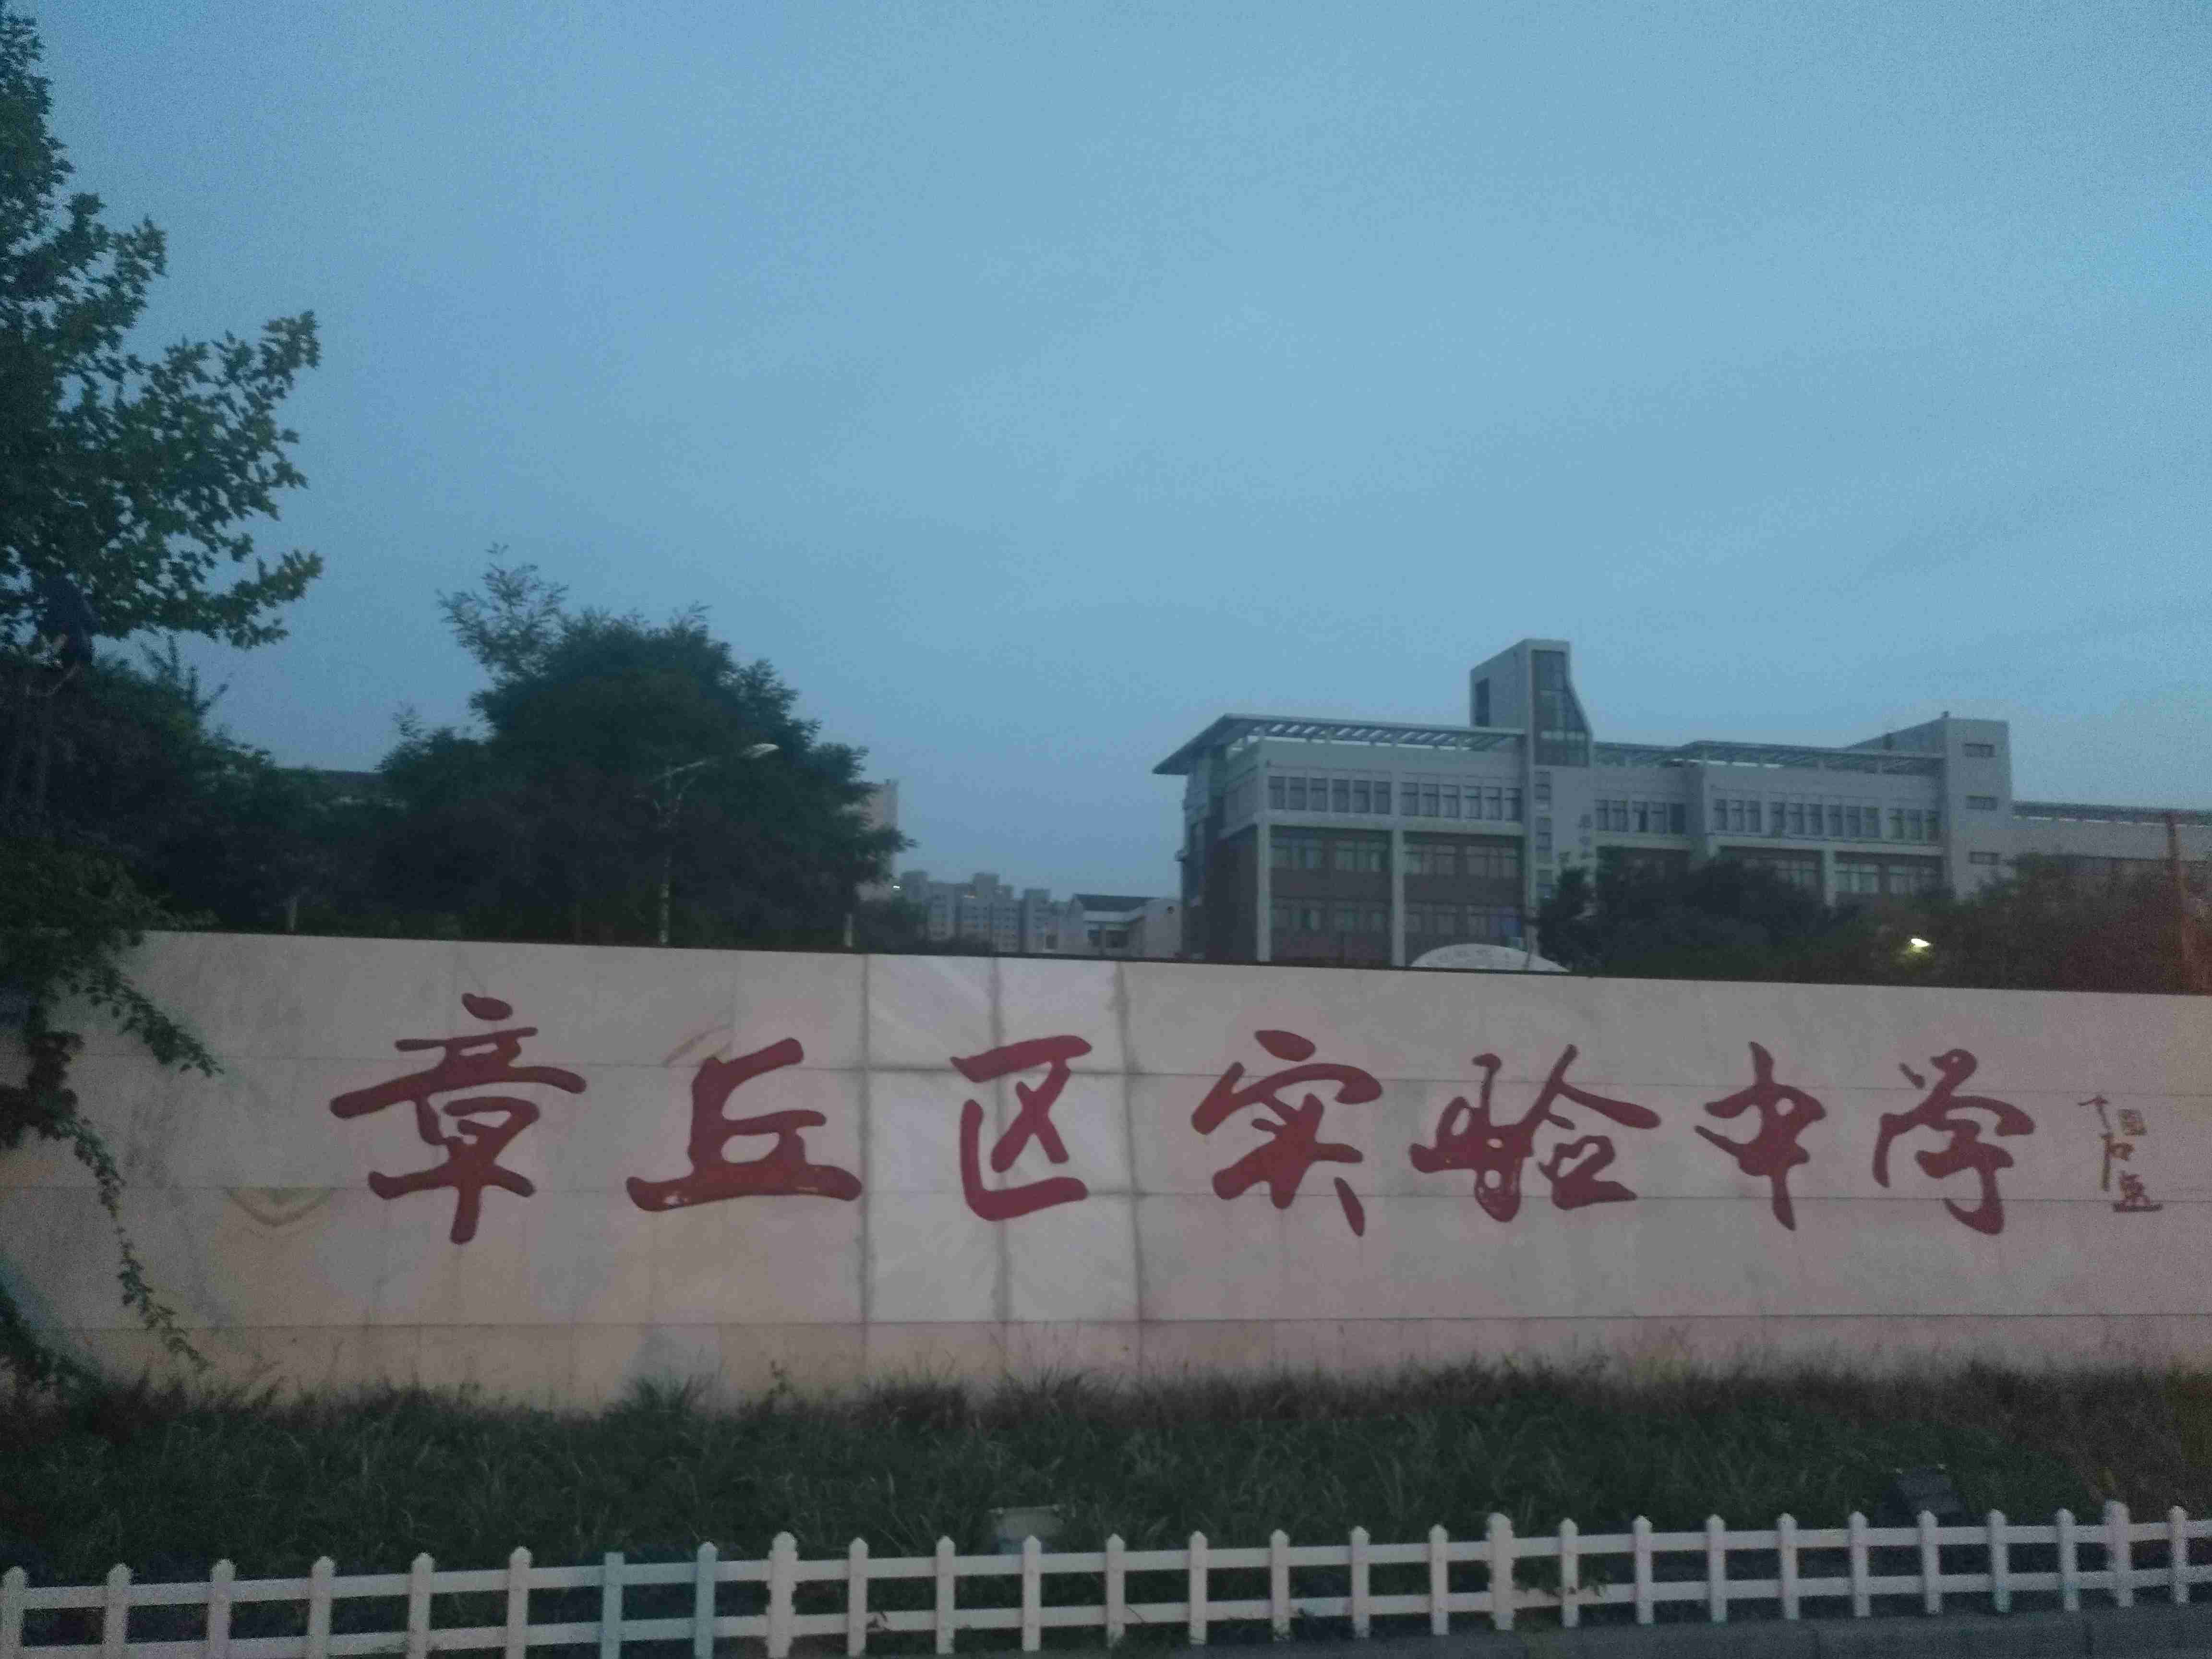 章丘区实验中学